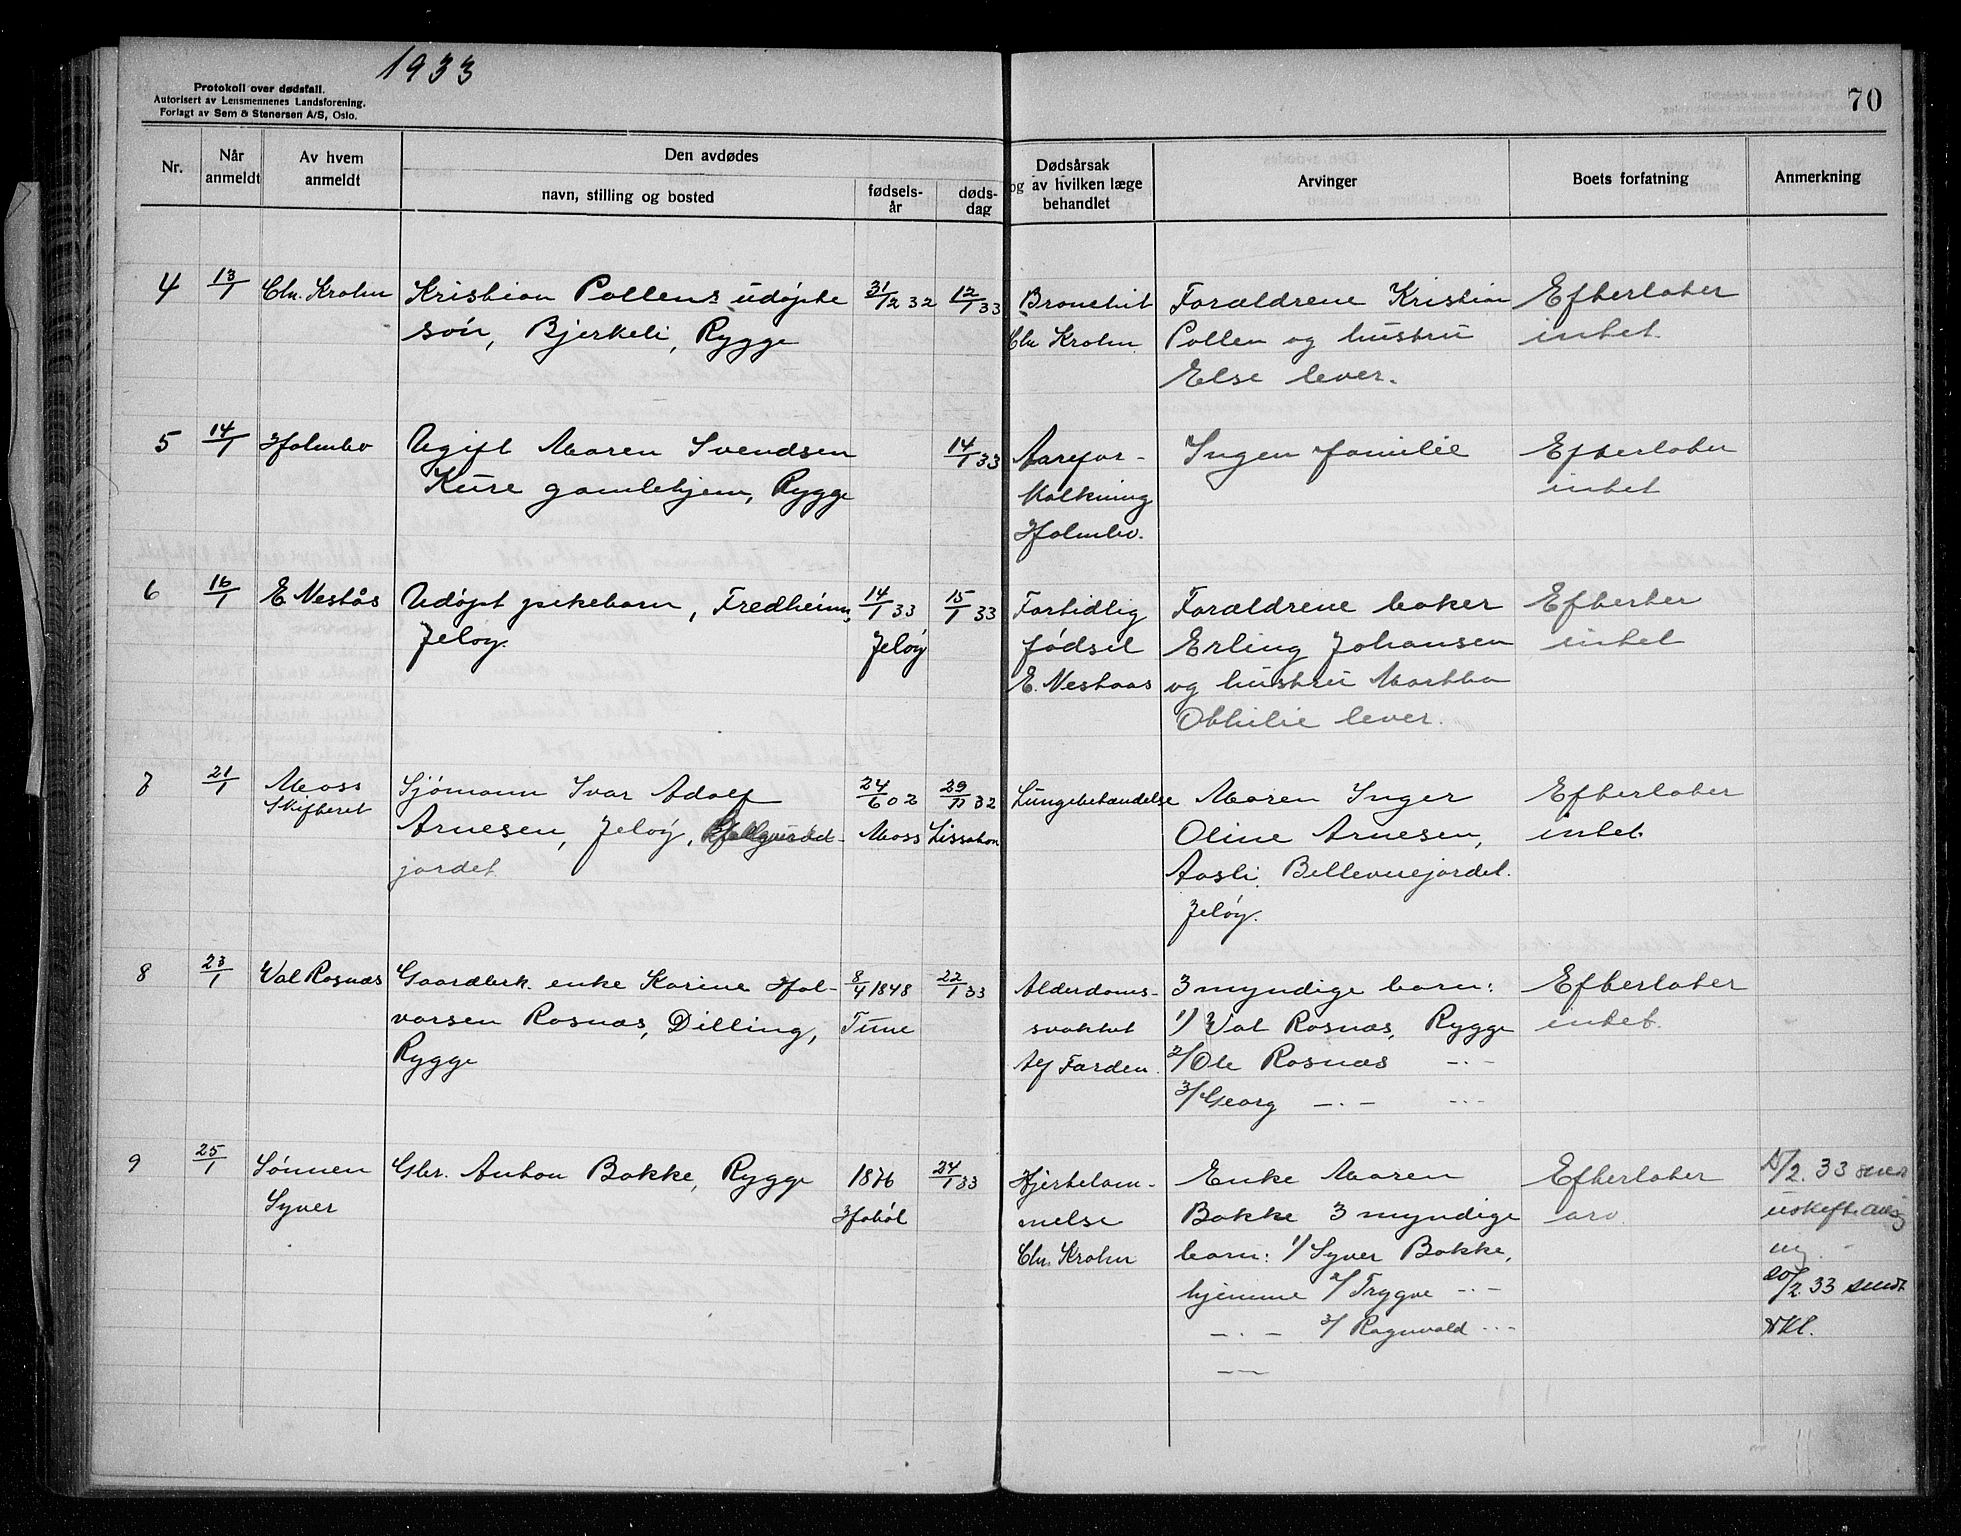 1933
Protokoll over dødsfall.
Autorisert av Lensmennenes Landsforening.
Forlagt av Sem & Stenersen A/S, Oslo.
70
Nr.
Når anmeldt
Av hvem anmeldt
Den avdødes
navn, stilling og bosted
fødsels-
år
døds-
dag
Dødsårsak
og av hvilken læge
behandlet
Arvinger
Boets forfatning
Anmerkning
4 13/1 Chr. Krohn Kristian Pollens udøpte 31/12 32 12/1 33 Bronchit Forældrene Kristian Efterlater
søn, Bjerkeli, Rygge Chr Krohn Pollen og hustru intet.
Else lever.
5 14/1 Holmbo Ugift Maren Svendsen 14/1 33 Aarefor- Ingen familie Efterlater
Kure gamlehjem, Rygge kalkning intet
Holmbo.
6 16/1 E Nestås Udøpt pikebarn, Fredheim, 14/1 33 15/1 33 Fortidlig Forældrene baker Efterter
Jeløy. Jeløy fødsel Erling Johansen intet
E. Nestaas og hustru Martha
Othilie lever.
7 21/1 Moss Sjømann Ivar Adolf 24/6 02 29/11 32 Lungebetændelse Maren Inger Efterlater
Skifteret Arnesen, Jeløy, Moss Lissabon Oline Arnesen, intet
jordet Aasli, Bellevuejordet.
Jeløy.
8 23/1 Val Rosnæs Gaardbrk. enke Karine Hal- 8/4 1848 22/1 33 Alderdoms- 3 myndige barn: Efterlater
vorsen Rosnæs, Dilling, Tune svakhet 1/ Val Rosnæs, Rygge intet.
Rygge Af Farden. 2/ Ole Rosnæs -"-
3/ Georg -"- -"-
9 25/1 Sønnen Gbr. Anton Bakke, Rygge 1876 24/1 33 Hjertelam- Enke Maren Efterlater 15/2. 33 sendt
Syver Hobøl melse Bakke 3 myndige arv.
Chr. Krohn barn: 1/ Syver Bakke,
hjemme 2/ Trygve -"- 20/2. 33 sendt
-"- 3/ Ragnvald -"-
-"-